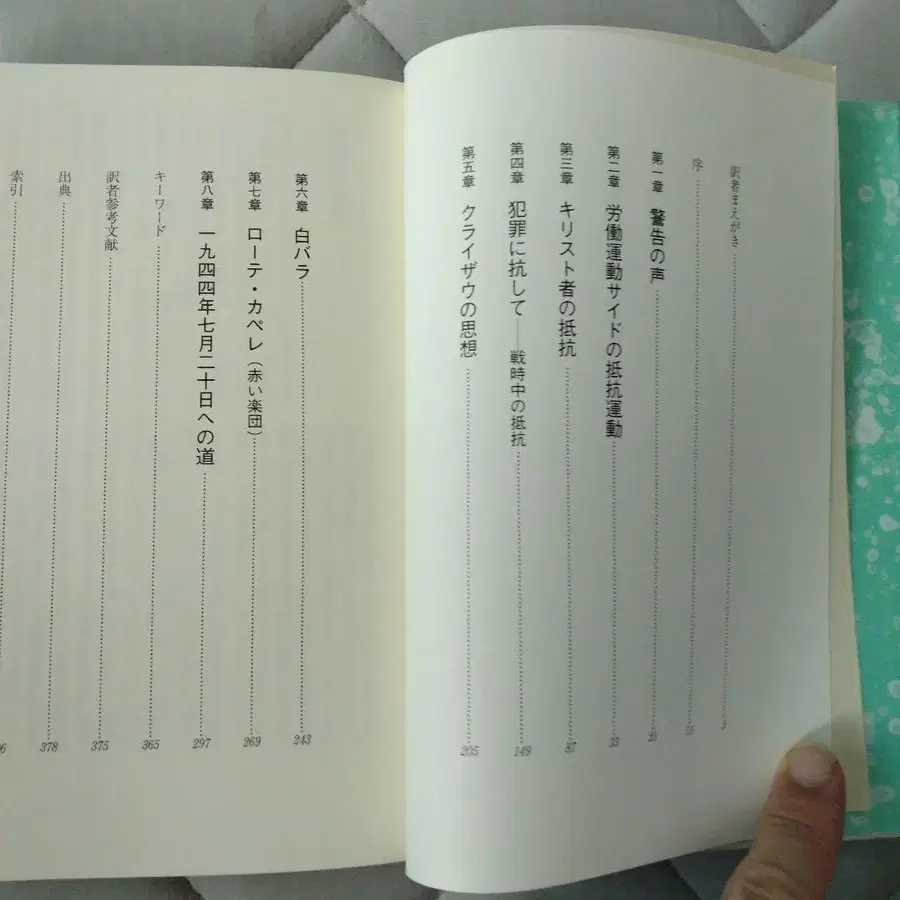 訳者まえがき 5
序
第一章 警告の声 21
第二章 労働運動サイドの抵抗運動 33
第三章 キリスト者の抵抗 87
第四章 犯罪に抗して——戦時中の抵抗 149
第五章 クライザウの思想 205
第六章 白バラ 243
第七章 ローテ・カペレ（赤い楽団） 269
第八章 一九四四年七月二十日への道 297
キーワード 365
訳者参考文献 375
出典 378
索引